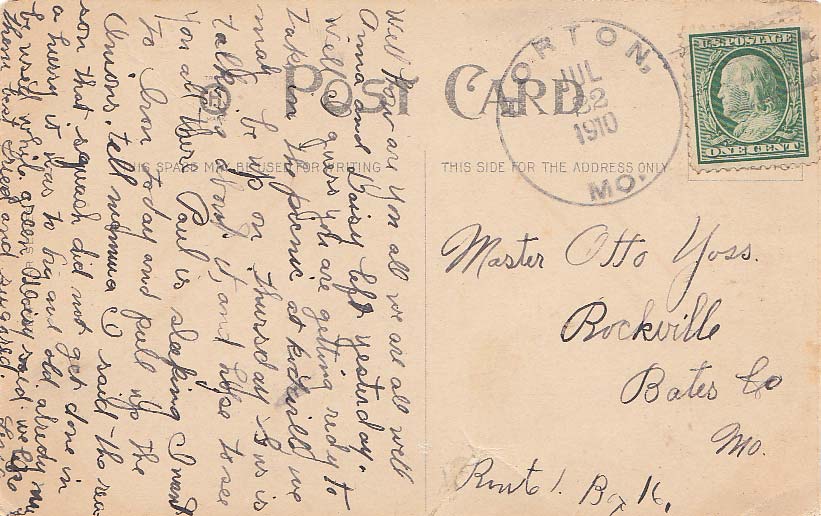 POST CARD
THIS SPACE MAY BE USED FOR WRITING
THIS SIDE FOR THE ADDRESS ONLY
NORTON,
JUL
22
1910
MO.
U.S. POSTAGE
ONE CENT
Master Otto Yoss.
Rockville
Bates Co
Mo.
Route 1. Box 16,
Well How are you all we are all well
Anna and Daisy left yesterday.
Well I guess you are getting redy to
take in the picnic at Rockvill we
may be up on Thursday Lewis is
talking about it, and hope to see
you all there Paul is sleeping I want
to Iron today and pull up the
Onions. tell mamma I said the rea
son that squash did not get done in
a hurry it was to big and old already my
be well while green Daisy said we like
them best fried and sugared.